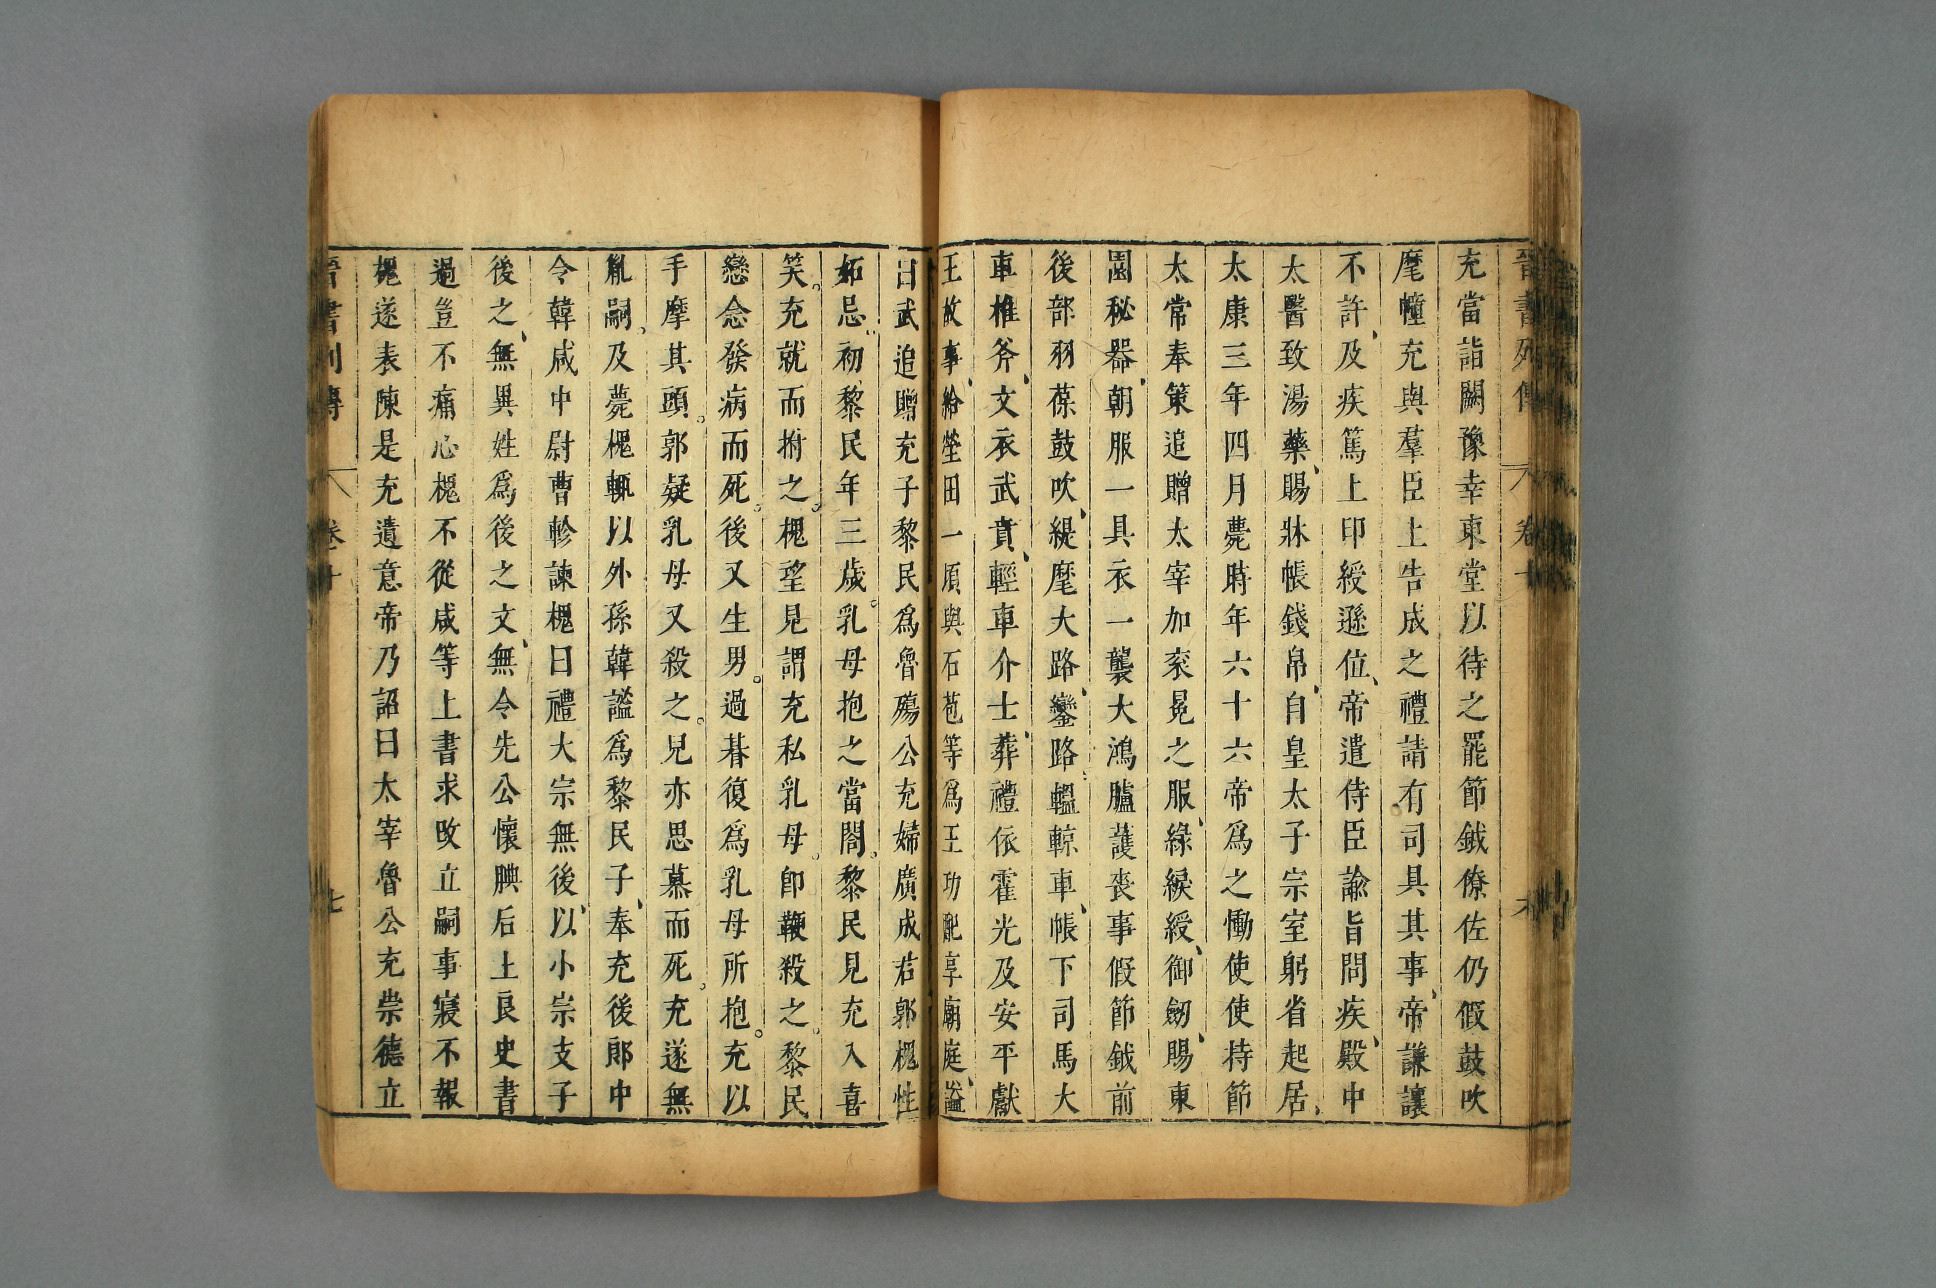 充當詣闕豫幸東堂以待之罷節鉞僚佐仍假鼓吹
麾幢充與羣臣上告成之禮請有司具其事帝謙讓
不許及疾篤上印綬遜位帝遣侍臣諭旨問疾殿中
太醫致湯藥賜牀帳錢帛自皇太子宗室躬省起居
太康三年四月薨時年六十六帝爲之慟使使持節
太常奉策追贈太宰加衮冕之服綠綟綬御劒賜東
園秘器朝服一具衣一襲大鴻臚護喪事假節鉞前
後部羽葆鼓吹緹麾大路鑾路轀輬車帳下司馬大
車椎斧文衣武賁輕車介士葬禮依霍光及安平獻
王故事給塋田一頃與石苞等爲王功配享廟庭謚
曰武追贈充子黎民爲魯殤公充婦廣成君郭槐性
妬忌初黎民年三歲乳母抱之當閤黎民見充入喜
笑充就而拊之槐望見謂充私乳母卽鞭殺之黎民
戀念發病而死後又生男過朞復爲乳母所抱充以
手摩其頭郭疑乳母又殺之兒亦思慕而死充遂無
胤嗣及薨槐輒以外孫韓謐爲黎民子奉充後郎中
令韓咸中尉曹軫諫槐曰禮大宗無後以小宗支子
後之無異姓爲後之文無令先公懷腆后土良史書
過豈不痛心槐不從咸等上書求改立嗣事寢不報
槐遂表陳是充遺意帝乃詔曰太宰魯公充崇德立
晉書列傳 卷十 七